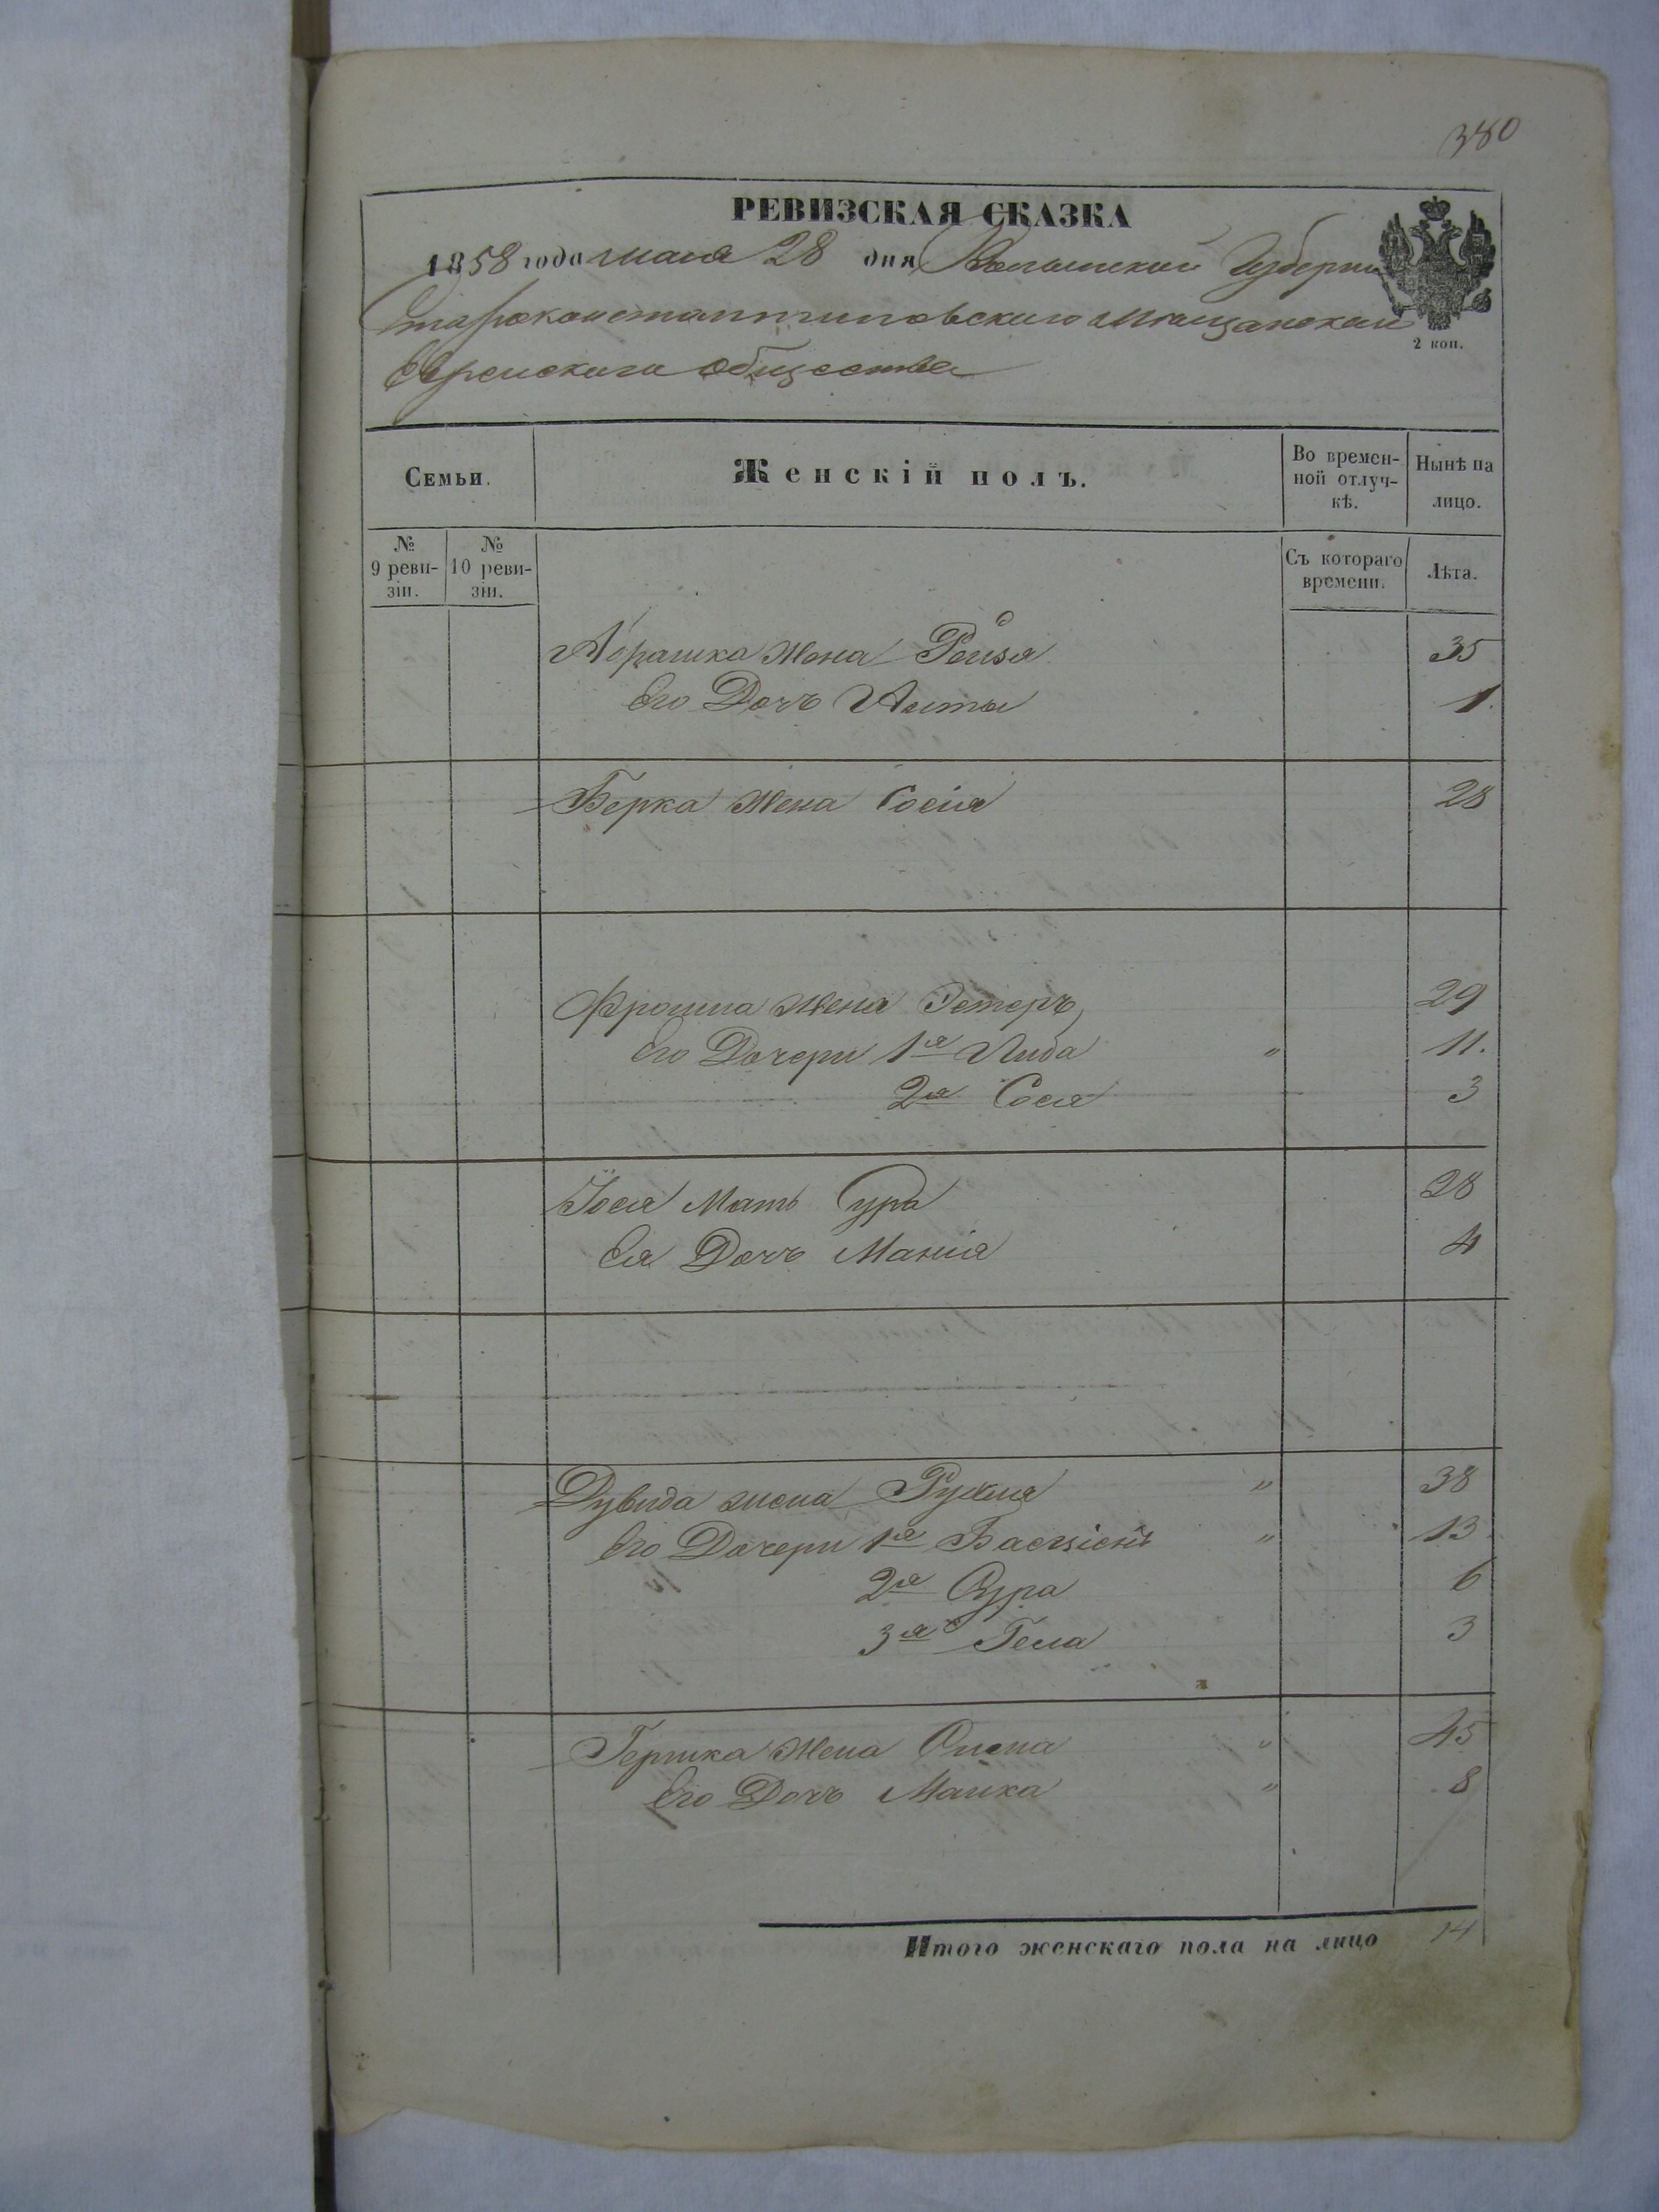 380
РЕВИЗСКАЯ СКАЗКА
1858 года мая 28 дня Волынской Губерни
Староконстантиновскаго Мещанскаго
Еврейскаго Общества
2 коп.
Семьи.
Женскій полъ.
Во времен-
ной отлуч-
кѣ.
Нынѣ на
лицо.
№
9 реви-
зіи.
№
10 реви-
зіи.
Съ котораго
времени.
Лѣта.
Абрашка Жена Рейзя 35
Его Дочь 1.
Берка Жена Сосія 28
Фроима Жена Эстеръ 29
Его Дочери 1я " 11.
2я Сося 3
Іося Мать Сура 28
Ея Дочь Манія 4
Дувида жена Рухля " 38
Его Дочери 1я " 13
2я Сура 6
3я 3
Гершка Жена " 45
Его Дочь Малка " 8
Итого женскаго пола на лицо 14